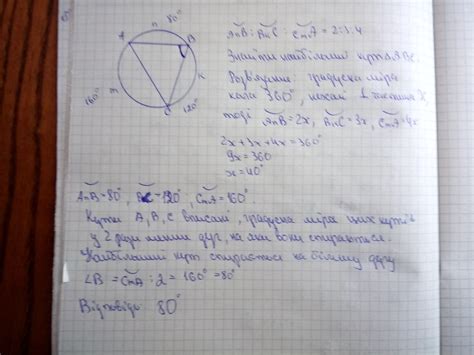 n 80°
A
B
m
к
160°
C 120°
AnB : BкC : CmA = 2:3:4
Знайти найбільший кут ΔABC.
Розв'язання: градусна міра
кола 360°, нехай 1 частина X
тоді AnB = 2x, BкC = 3x, CmA = 4x
2x + 3x + 4x = 360°
9x = 360
x = 40°
AnB = 80°, BC = 120°, CmA = 160°
Кути A, B, C вписані, градусна міра цих кутів
у 2 рази менша дуг, на які вони спираються.
Найбільший кут спирається на більшу дугу
∠B = CmA : 2 = 160° = 80°
Відповідь 80°